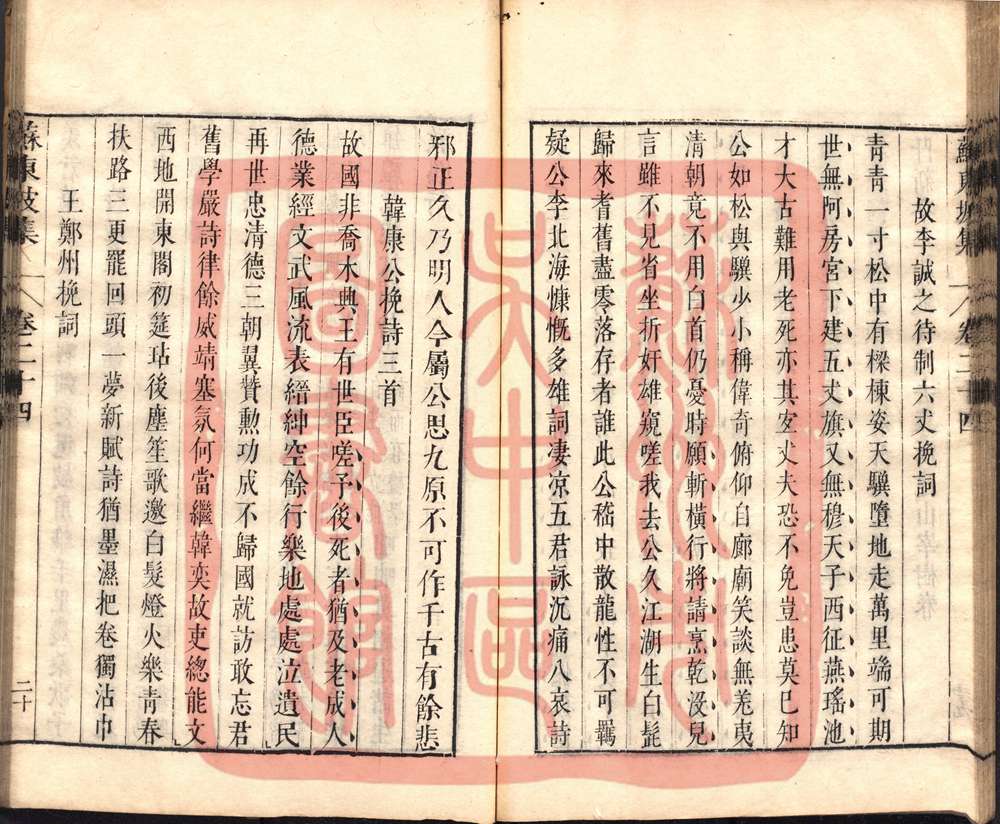 蘇東坡集 卷二十四
故李誠之待制六丈挽詞
青青一寸松中有樑棟姿天驥墮地走萬里端可期
世無阿房宮下建五丈旗又無穆天子西征燕瑤池
才大古難用老死亦其宜丈夫恐不免豈患莫已知
公如松與驥少小稱偉奇俯仰自廊廟笑談無羌夷
清朝竟不用白首仍憂時願斬橫行將請烹乾沒兒
言雖不見省坐折奸雄窺嗟我去公久江湖生白髭
歸來耆舊盡零落存者誰此公嵇中散龍性不可羈
疑公李北海慷慨多雄詞凄凉五君詠沉痛八哀詩
邪正久乃明人今屬公思九原不可作千古有餘悲
韓康公挽詩三首
故國非喬木興王有世臣嗟予後死者猶及老成人
德業經文武風流表縉紳空餘行樂地處處泣遺民
再世忠清德三朝翼贊勲功成不歸國就訪敢忘君
舊學嚴詩律餘威靖塞氛何當繼韓奕故吏總能文
西地開東閣初筵玷後塵笙歌邀白髮燈火樂青春
扶路三更罷回頭一夢新賦詩猶墨濕把卷獨沾巾
王鄭州挽詞
蘇東坡集 卷二十四 二十
中國
圖書館